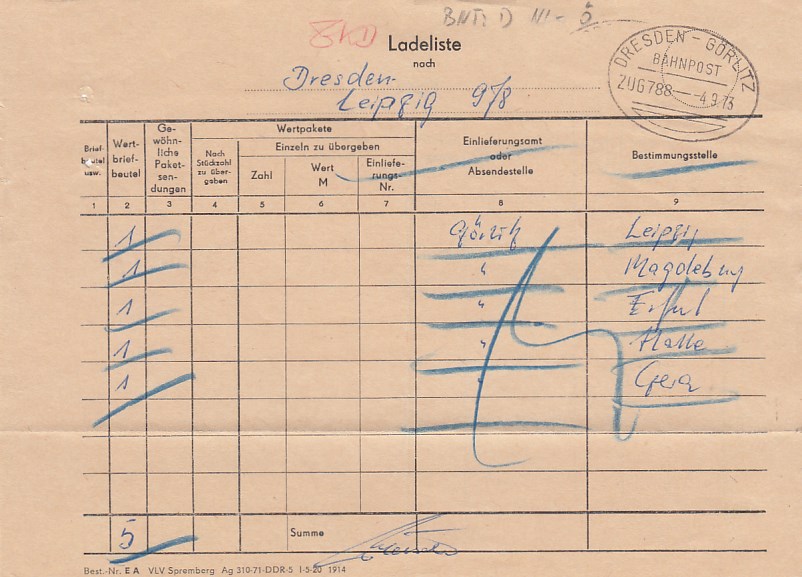 BNT: D
ZKD
Ladeliste
nach
Dresden-
Leipzig 9/8
DRESDEN - GÖRLITZ
BAHNPOST
ZUG 788 -4.9.73
Brief-
beutel
usw.
Wert-
brief-
beutel
Ge-
wöhn-
liche
Paket-
sen-
dungen
Wertpakete
Nach
Stückzahl
zu über-
geben
Einzeln zu übergeben
Zahl
Wert
M
Einliefe-
rungs-
Nr.
Einlieferungsamt
oder
Absendestelle
Bestimmungsstelle
1 2 3 4 5 6 7 8 9
1 Görlitz Leipzig
1 " Magdeburg
1 " Erfurt
1 " Halle
1 " Gera
5 Summe
Best.-Nr. EA VLV Spremberg Ag 310-71-DDR-5 I-5-20 1914